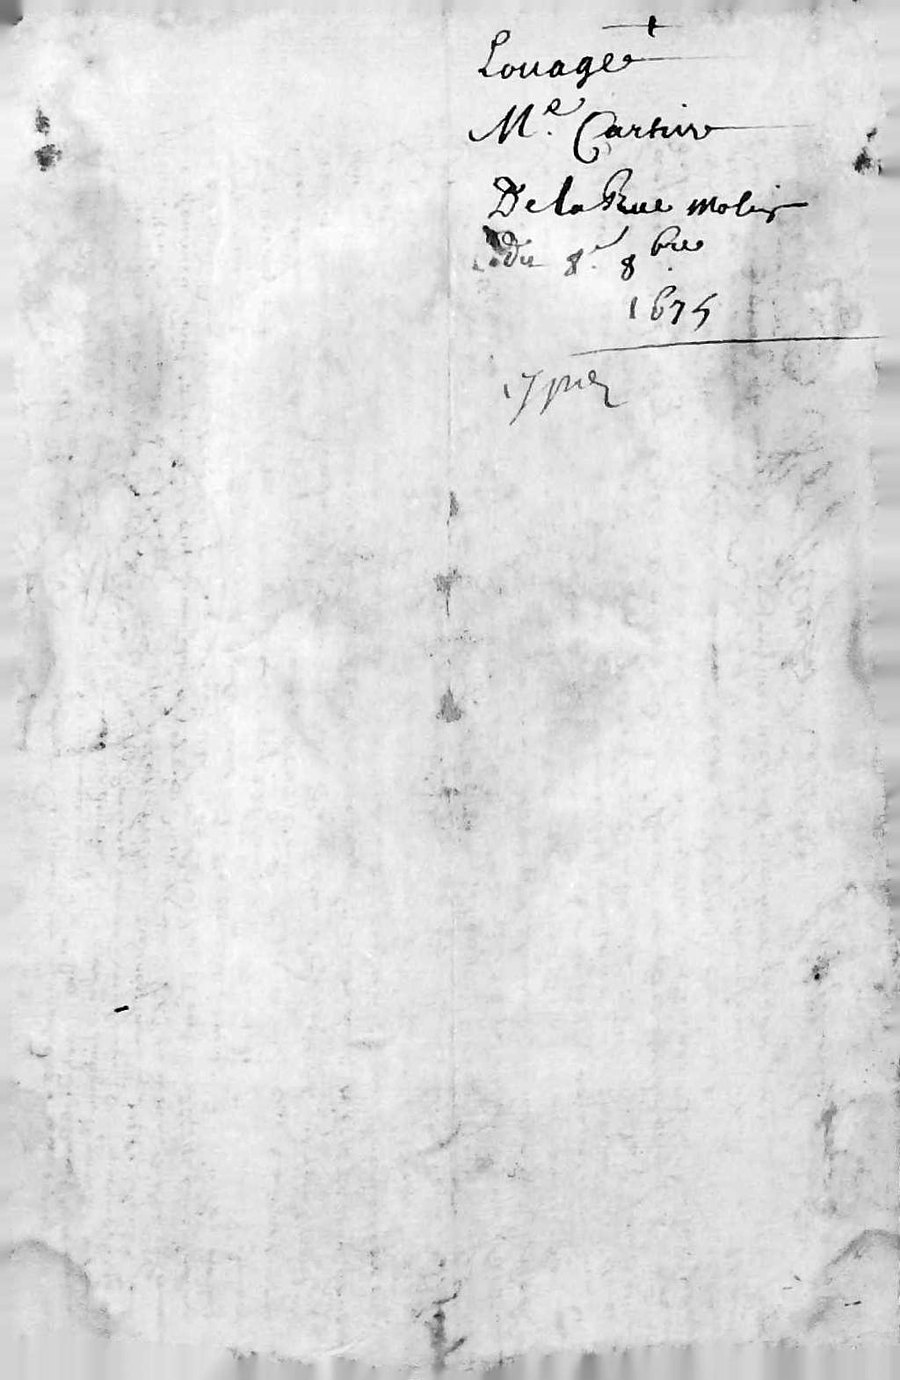 Louage
Me. Cartier
De la Rue molin
Du 8e. 8bre
1675